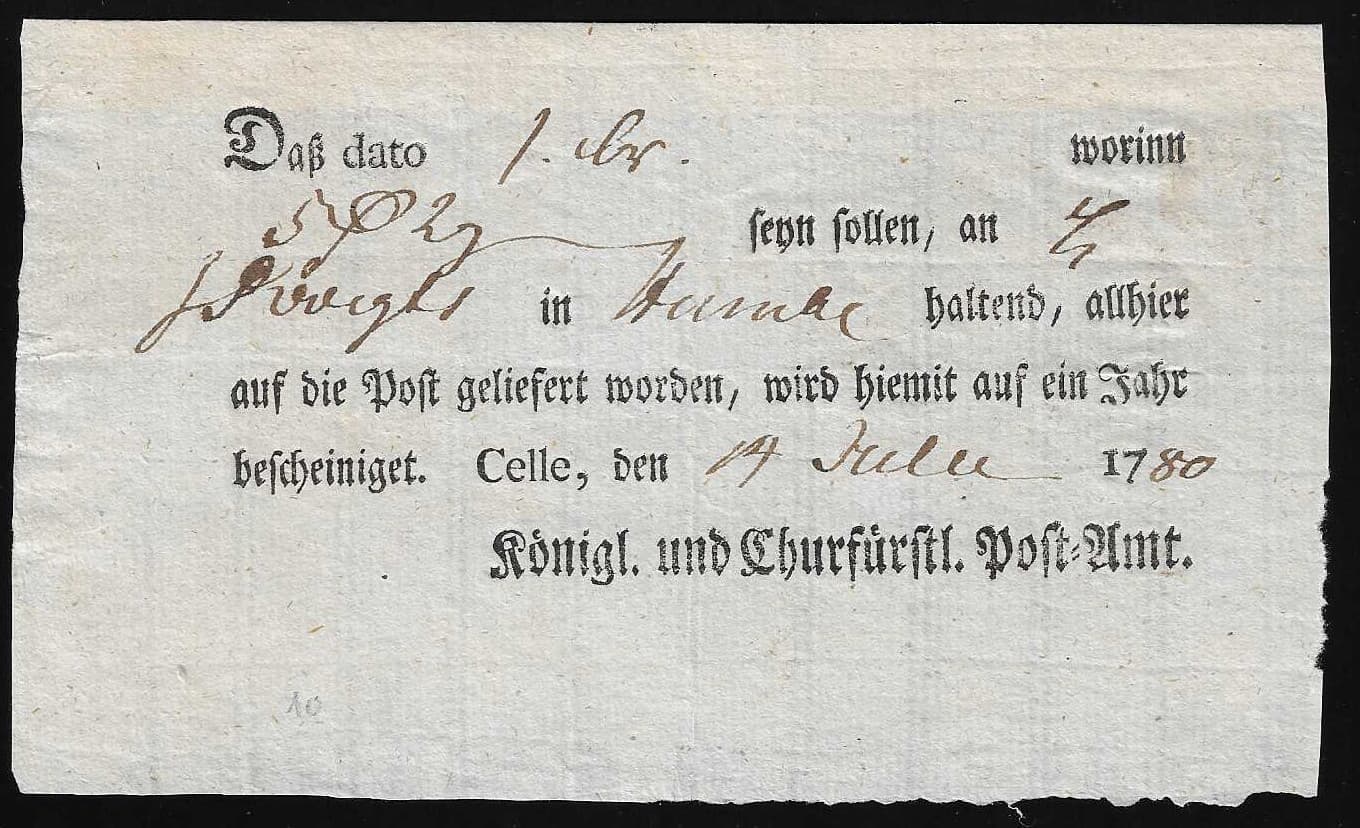 Daß dato 1. br. worinn
5 seyn sollen, an
Voigts in Hambg haltend, allhier
auf die Post geliefert worden, wird hiemit auf ein Jahr
bescheiniget. Celle, den 14 Julii 1780
Königl. und Churfürstl. Post-Amt.
10